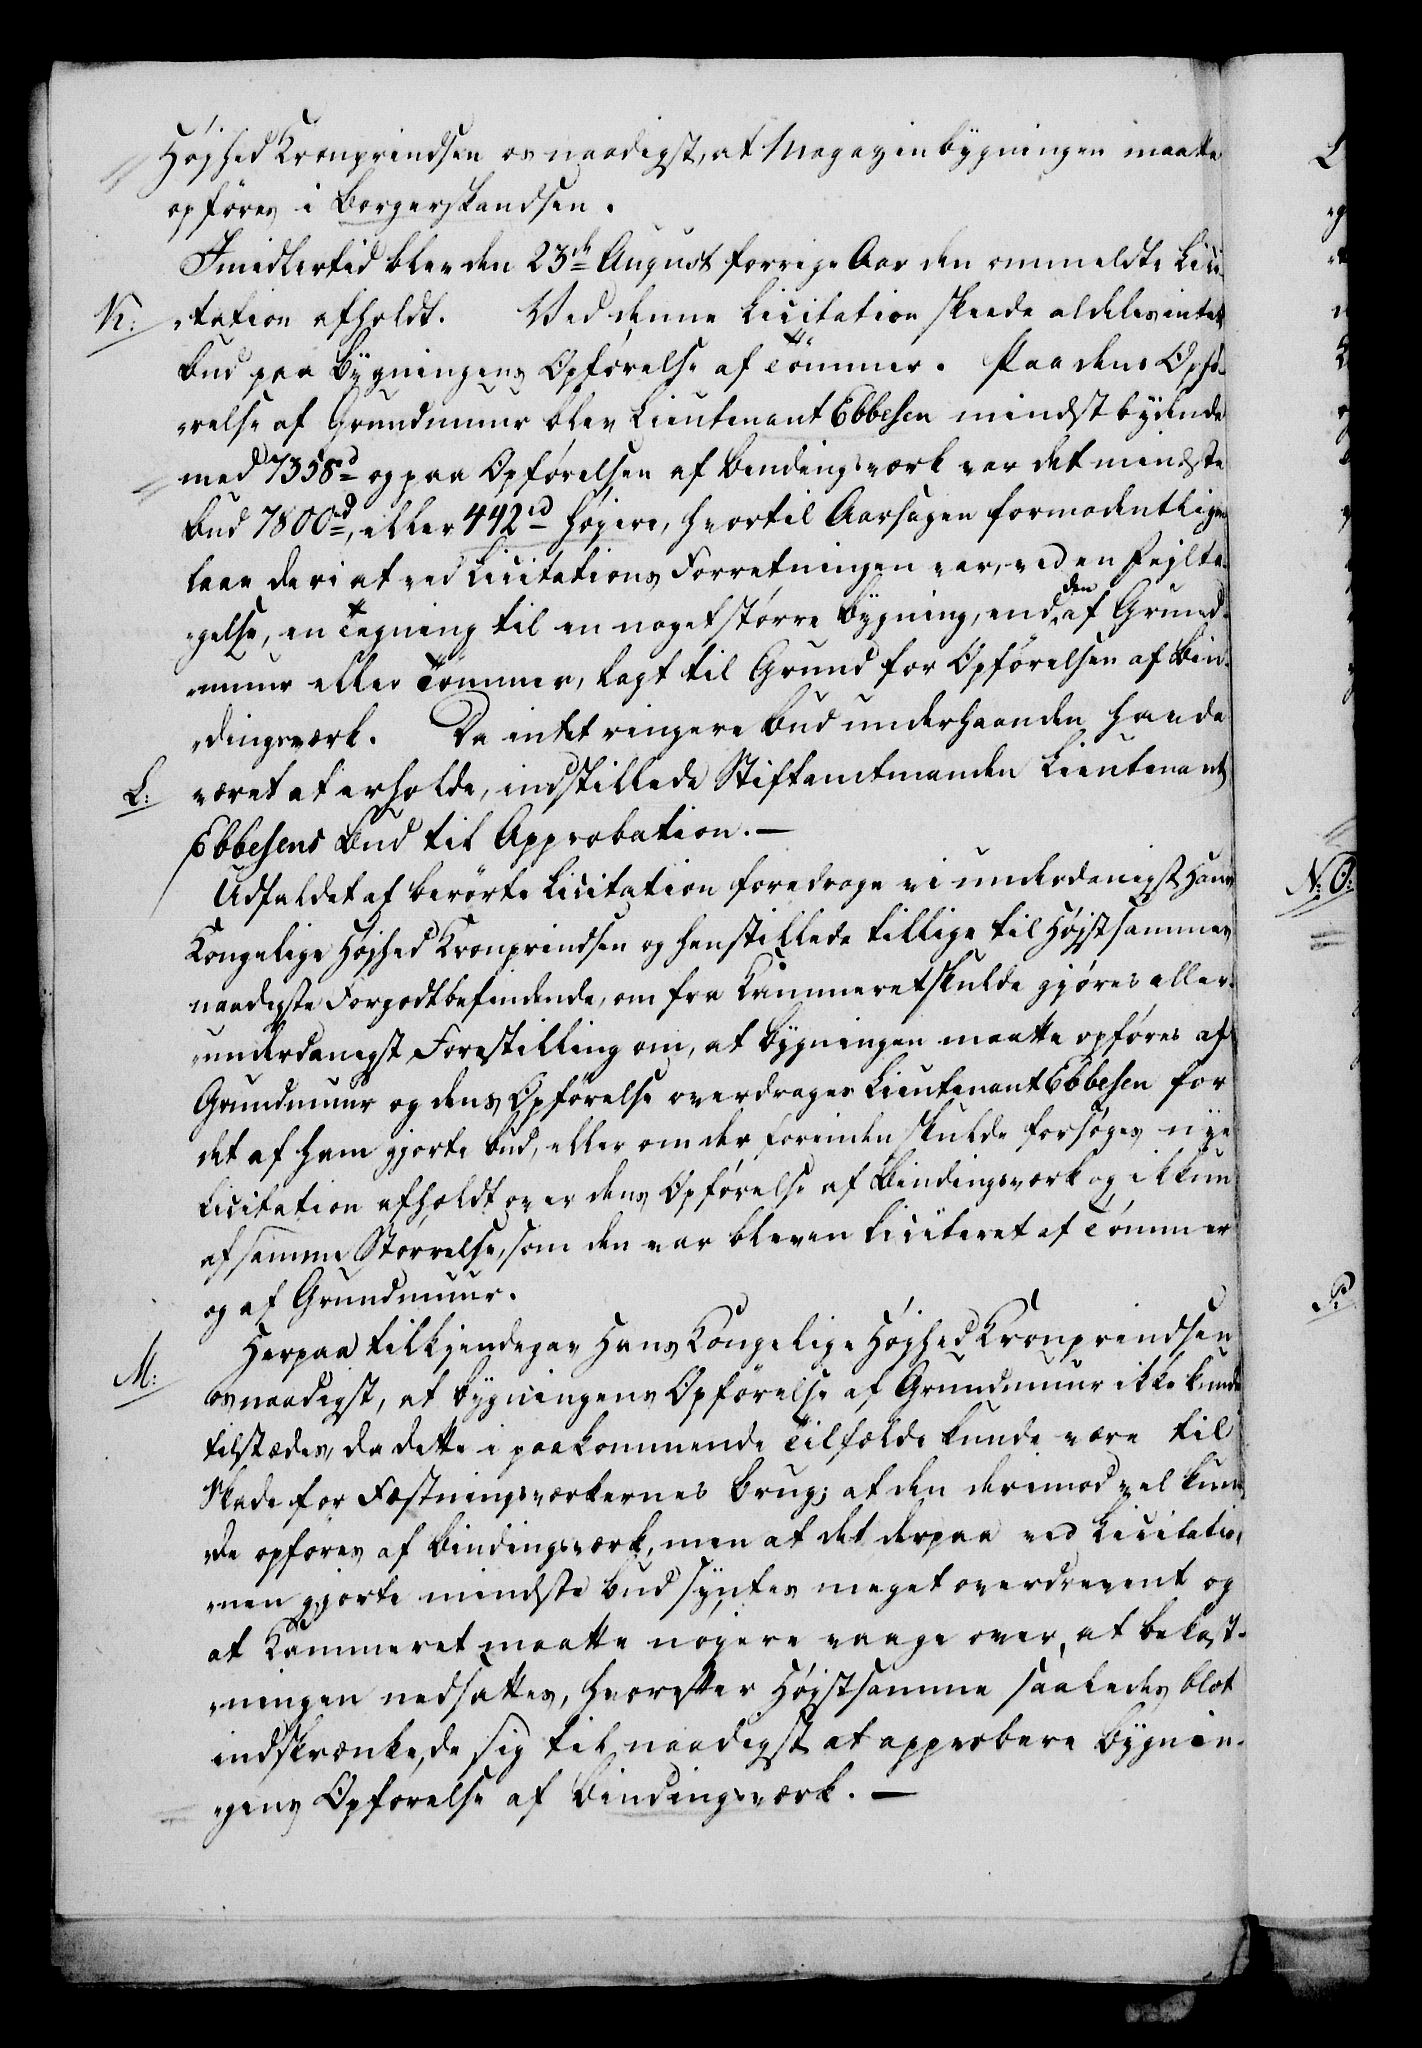 Højhed Kronprindsen os naadigst, at Magazinbygningen maatte
opføres i Borgerskandsen.
Imidlertid blev den 23de August forrige Aar den ommeldte Lici-
K: tation afholdt. Ved denne Licitation skeede aldeles intet
Bud paa Bygningens Opførelse af Tömmer. Paa dens Opfö-
relse af Grundmuur blev Lieutenant Ebbesen mindstbydende
med 7358rd og paa Opførelsen af Bindingsværk var det mindste
Bud 7800rd, eller 442rd høyere, hvortil Aarsagen formodentligen
laae deri at ved Licitations Forretningen var, ved en Fejlta-
gelse, en Tegning til en noget større Bygning, end den af Grund-
muur eller Tömmer, lagt til Grund for Opførelsen af Bin-
dingsværk. Da intet ringere Bud underhaanden havde
L: været at erholde, indstillede Stiftamtmanden Lieutenant
Ebbesens Bud til Approbation. —
Udfaldet af berørte Licitation foredroge vi underdanigst Hans
Kongelige Højhed Kronprindsen og henstillede tillige til Højstsammes
naadigste Forgodtbefindende, om fra Kammeret skulde gjøres aller-
underdanigst Forestilling om, at Bygningen maatte opføres af
Grundmuur og dens Opførelse overdrages Lieutenant Ebbesen for
det af ham gjorte Bud, eller om der forinden skulde forsøges nye
Licitation afholdt over dens Opførelse af Bindingsværk og ikkun
af samme Størrelse, som den var bleven liciteret af Tömmer
og af Grundmuur.
M: Herpaa tilkjendegav Hans Kongelige Højhed Kronprindsen
os naadigst, at Bygningens Opførelse af Grundmuur ikke kunde
tilstædes, da dette i paakommende Tilfælde kunde være til
Skade for Fæstningsværkernes Brug; at den derimod vel kun-
de opføres af Bindingsværk, men at det derpaa ved Licitatio-
nen gjorte mindste Bud syntes meget overdrevent og
at Kammeret maatte nøyere vaage over, at Bekost-
ningen nedsattes, hvorefter Højstsamme saaledes blot
indskrænkede sig til naadigst at approbere Bygnin-
gens Opførelse af Bindingsværk. —
N: O:
P: